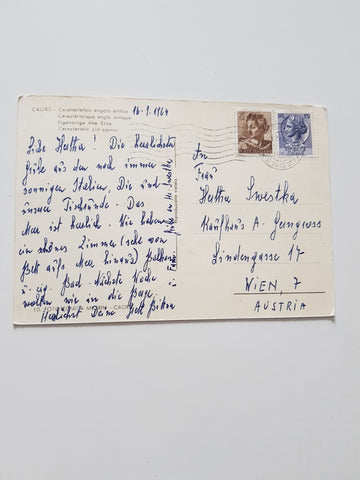 CAORLE - Caratteristico angolo antico
Caractéristique angle antique
Eigenartige Alte Ecke
Characteristic old corner
16.9.1964
Liebe Hertha! Die herzlichsten
Grüße aus dem noch immer
sonnigen Italien, Die sind
unsere Das
Meer ist herrlich. Wir haben
ein schönes Zimmer (sehe vom
Bett aufs Meer hinaus) Balkon
u. eig. Bad. Nächste Woche
wollen wir in die Berge.
Herzlichst Deine
Grüße an He. Swestka
An
Frau
Hertha Swestka
Kaufhaus A. Gerngross
Lindengasse 17
WIEN, 7
AUSTRIA